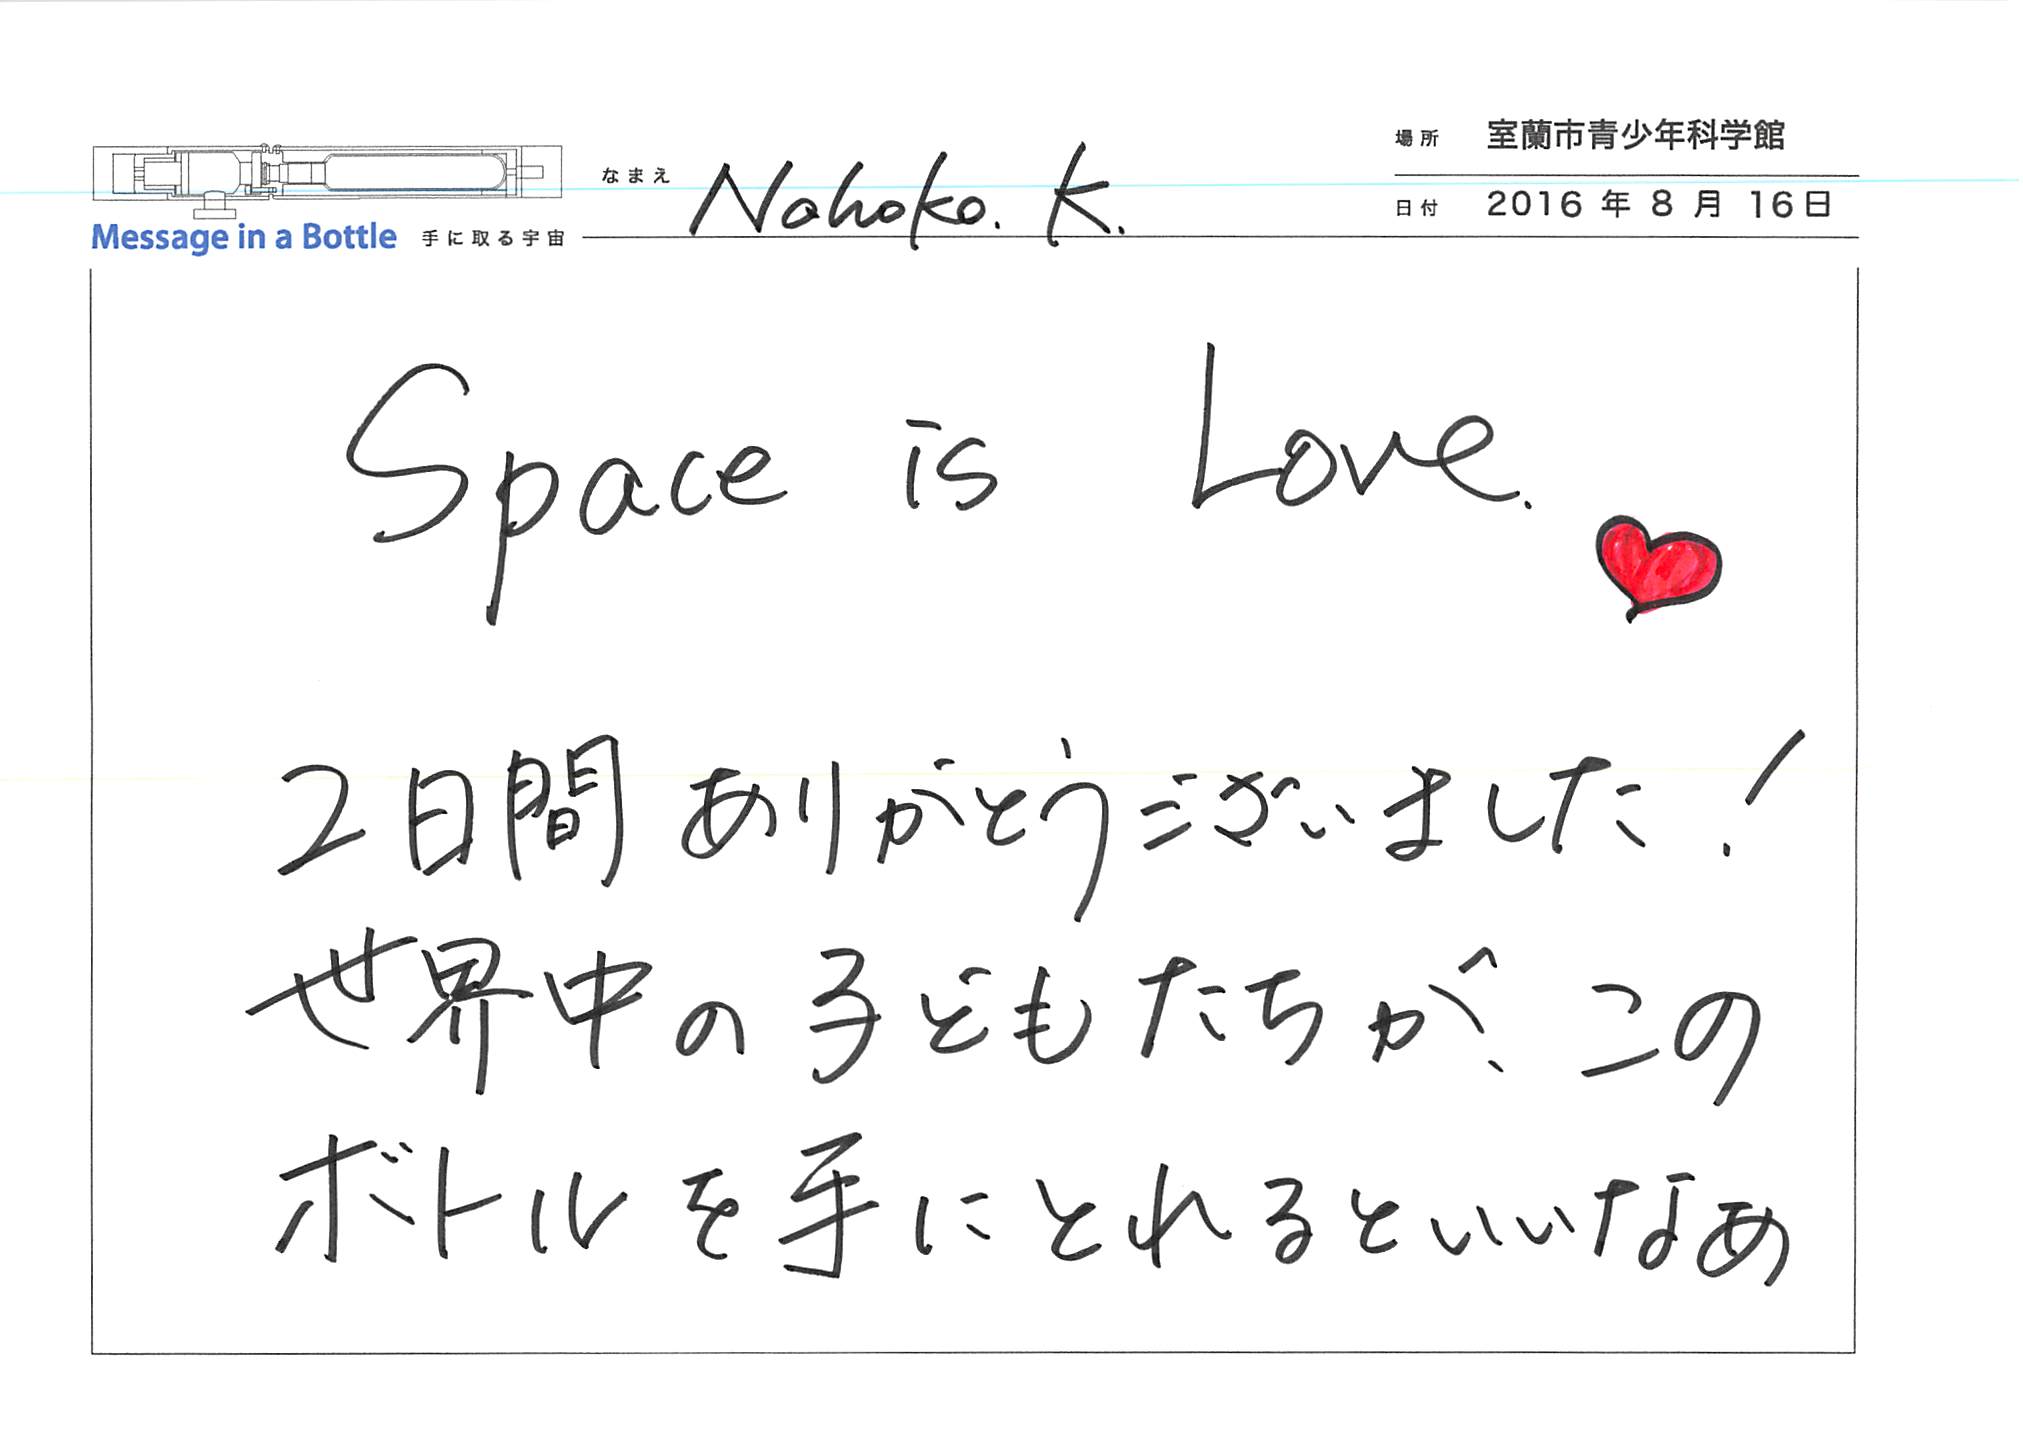 場所 室蘭市青少年科学館
なまえ Nahoko. K.
日付 2016 年 8 月 16日
Message in a Bottle 手に取る宇宙
Space is Love.
2日間ありがとうございました!
世界中の子どもたちが、この
ボトルを手にとれるといいなぁ